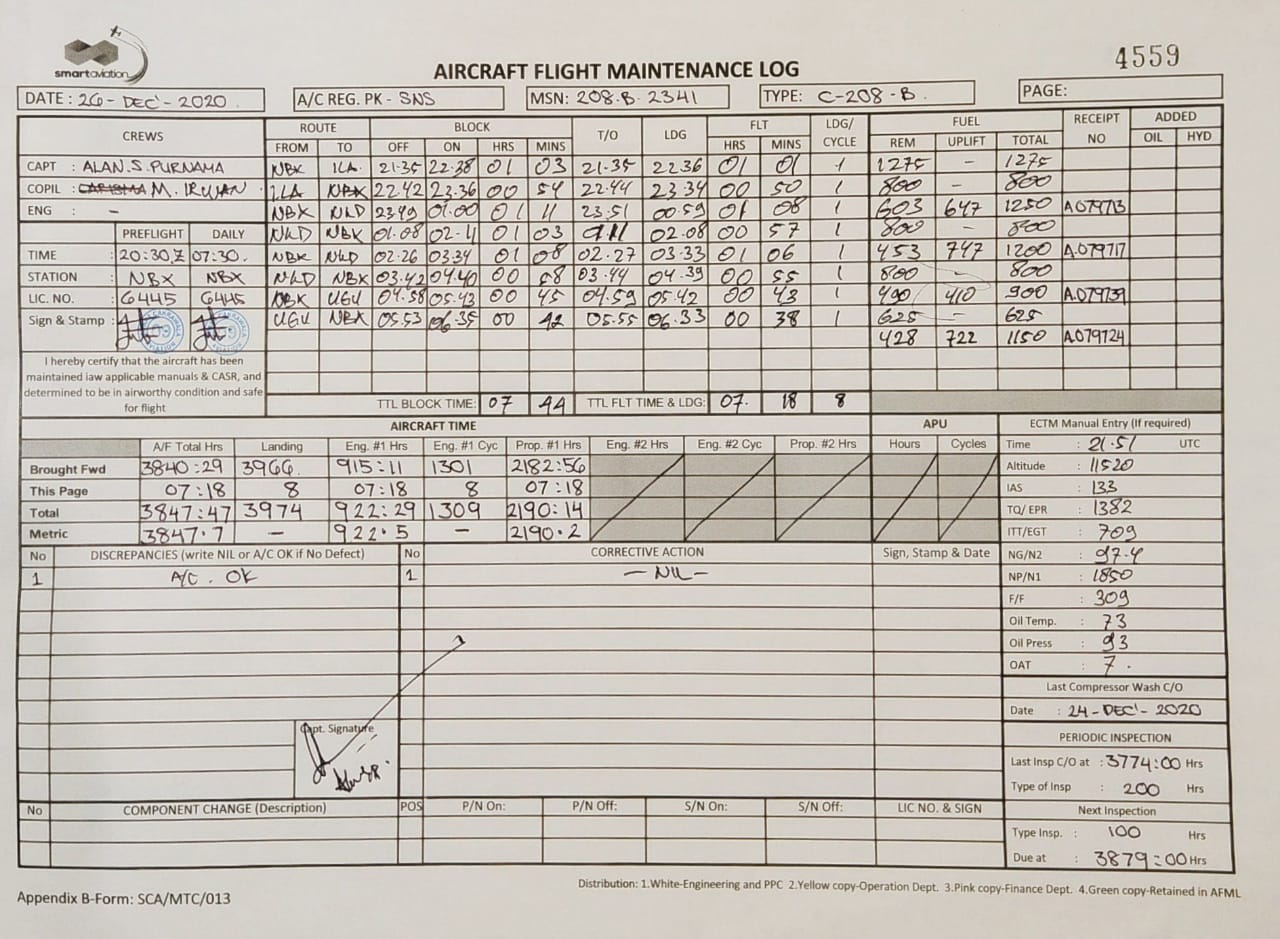 smartaviation
4559
AIRCRAFT FLIGHT MAINTENANCE LOG
DATE : 26 - DEC' - 2020 A/C REG. PK - SNS MSN: 208.B. 2341 TYPE: C-208-B. PAGE:
CREWS ROUTE BLOCK T/O LDG FLT LDG/CYCLE FUEL RECEIPT NO ADDED
FROM TO OFF ON HRS MINS HRS MINS REM UPLIFT TOTAL OIL HYD
CAPT : ALAN.S.PURNAMA NBX ILA 21.35 22.38 01 03 21.35 22.36 01 01 1 1275 - 1275
COPIL : M. IRWAN ILA NBX 22.42 23.36 00 54 22.44 23.34 00 50 1 800 - 800
ENG : - NBX NLD 23.49 01.00 01 11 23.51 00.59 01 08 1 603 647 1250 A079713
PREFLIGHT DAILY NLD NBX 01.08 02.11 01 03 02.08 00 57 1 800 - 800
TIME : 20:30,Z 07:30. NBX NLD 02.26 03.34 01 08 02.27 03.33 01 06 1 453 747 1200 A.079717
STATION : NBX NBX NLD NBX 03.42 04.40 00 58 03.44 04.39 00 55 1 800 - 800
LIC. NO. : 6445 6445 NBX UGU 04.58 05.43 00 45 04.59 05.42 00 43 1 490 410 900 A.079739
Sign & Stamp : UGU NBX 05.53 06.35 00 42 05.55 06.33 00 38 1 625 - 625
428 722 1150 A.079724
I hereby certify that the aircraft has been
maintained iaw applicable manuals & CASR, and
determined to be in airworthy condition and safe
for flight
TTL BLOCK TIME: 07 44 TTL FLT TIME & LDG: 07. 18 8
AIRCRAFT TIME APU ECTM Manual Entry (If required)
A/F Total Hrs Landing Eng. #1 Hrs Eng. #1 Cyc Prop. #1 Hrs Eng. #2 Hrs Eng. #2 Cyc Prop. #2 Hrs Hours Cycles Time : 21.51 UTC
Brought Fwd 3840:29 3966 915:11 1301 2182:56 Altitude : 11520
This Page 07:18 8 07:18 8 07:18 IAS : 133
Total 3847:47 3974 922:29 1309 2190:14 TQ/ EPR : 1382
Metric 3847.7 - 922.5 - 2190.2 ITT/EGT : 709
No DISCREPANCIES (write NIL or A/C OK if No Defect) No CORRECTIVE ACTION Sign, Stamp & Date NG/N2 : 97.4
1 A/C. OK 1 - NIL - NP/N1 : 1850
F/F : 309
Oil Temp. : 73
Oil Press : 93
OAT : 7.
Last Compressor Wash C/O
Date : 24-DEC'-2020
Capt. Signature
PERIODIC INSPECTION
Last Insp C/O at : 3774:00 Hrs
Type of Insp : 200 Hrs
No COMPONENT CHANGE (Description) POS P/N On: P/N Off: S/N On: S/N Off: LIC NO. & SIGN Next Inspection
Type Insp. : 100 Hrs
Due at : 3879:00 Hrs
Distribution: 1.White-Engineering and PPC 2.Yellow copy-Operation Dept. 3.Pink copy-Finance Dept. 4.Green copy-Retained in AFML
Appendix B-Form: SCA/MTC/013